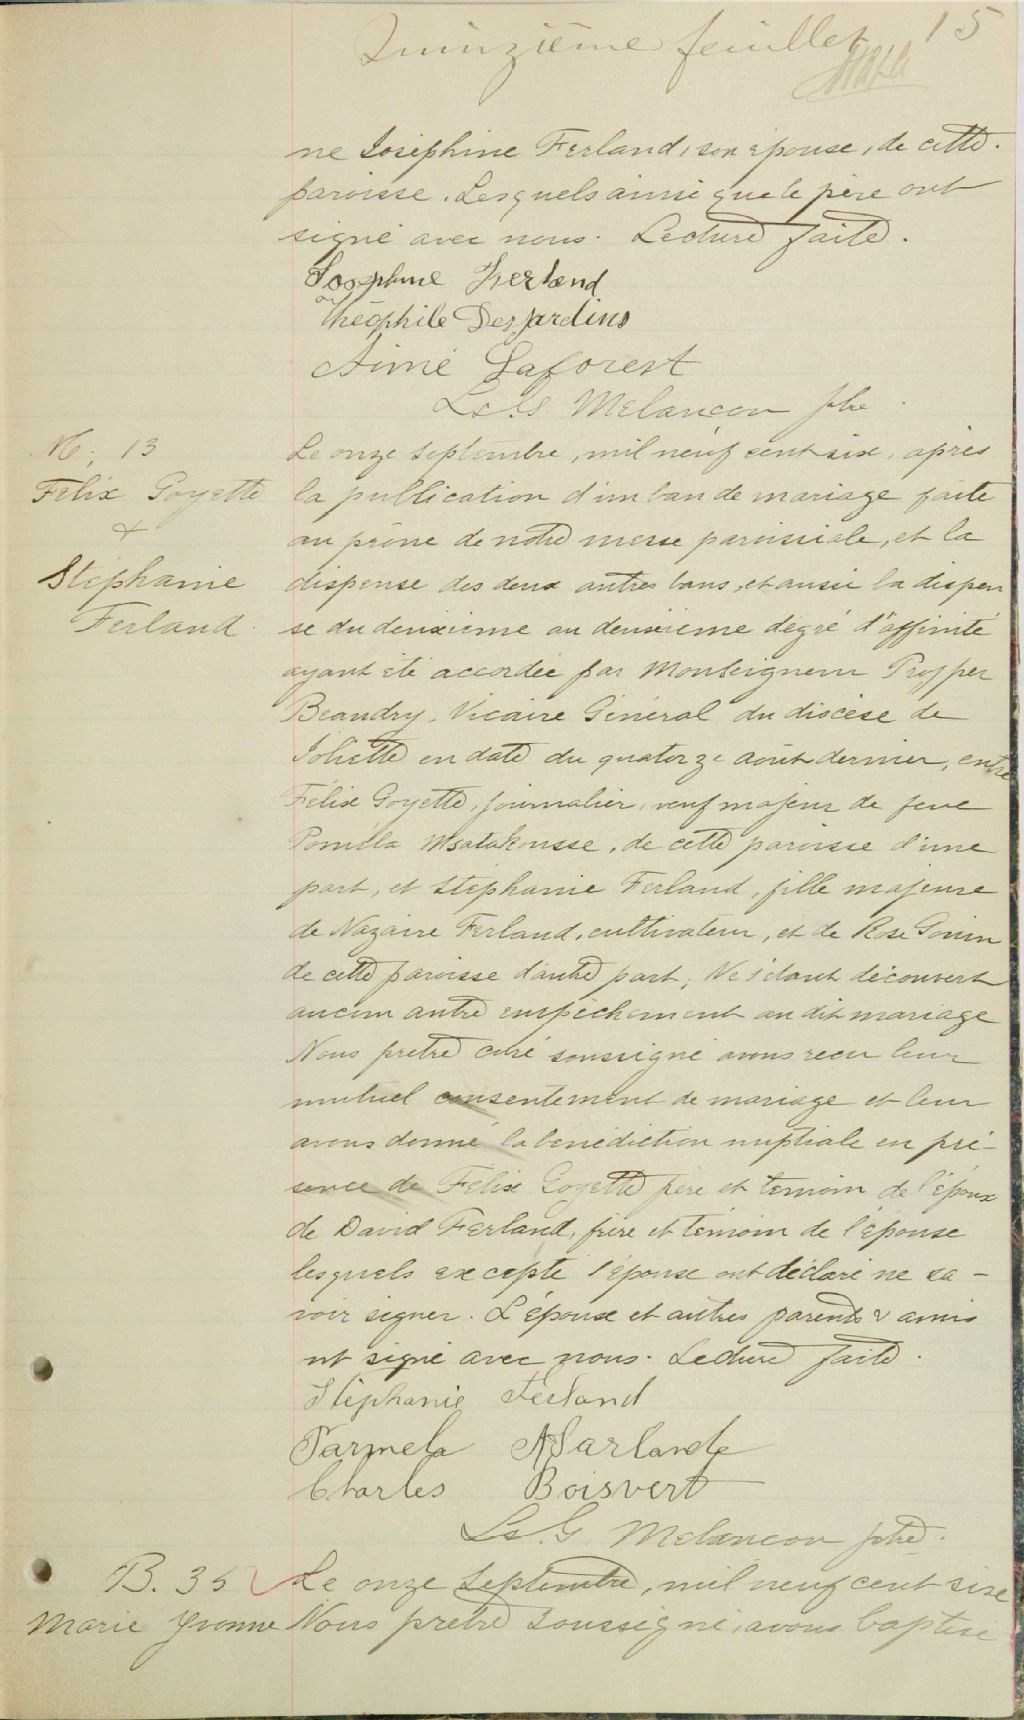 Quinzième feuillet 15
ne Joséphine Ferland, son épouse, de cette
paroisse. Lesquels ainsi que le père ont
signé avec nous. Lecture faite.
Josephine Ferland
Théophile Desjardins
Aimé Laforest
Ls. G. Melancon ptre.
M. 13
Felix Goyette
&
Stephanie
Ferland.
Le onze Septembre, mil neuf cent six, après
la publication d'un ban de mariage faite
au prône de notre messe paroissiale, et la
dispense des deux autres bans, et aussi la dispen
se du deuxième au deuxième dégré d'affinité
ayant été accordée par Monseigneur Prosper
Beaudry, Vicaire Général du diocèse de
Joliette en date du quatorze août dernier, entre
Félix Goyette, journalier, veuf majeur de feue
Poméla Msatakousse, de cette paroisse d'une
part, et Stéphanie Ferland, fille majeure
de Nazaire Ferland, cultivateur, et de Rose Gouin
de cette paroisse d'autre part; Ne s'étant découvert
aucun autre empêchement au dit mariage
Nous prêtre curé soussigné avons recu leur
mutuel consentement de mariage et leur
avons donné la bénédiction nuptiale en pré-
sence de Félix Goyette père et temoin de l'époux
de David Ferland, frère et témoin de l'épouse
lesquels excepté l'épouse ont déclaré ne sa-
voir signer. L'épouse et autres parents & amis
nt signé avec nous. Lecture faite.
Stéphanie Ferland
Parmela
Charles Boisvert
Ls. G. Melancon ptre.
B. 35
Marie Yvonne
Le onze Septembre, mil neuf cent six
Nous prêtre soussigné, avons baptisé